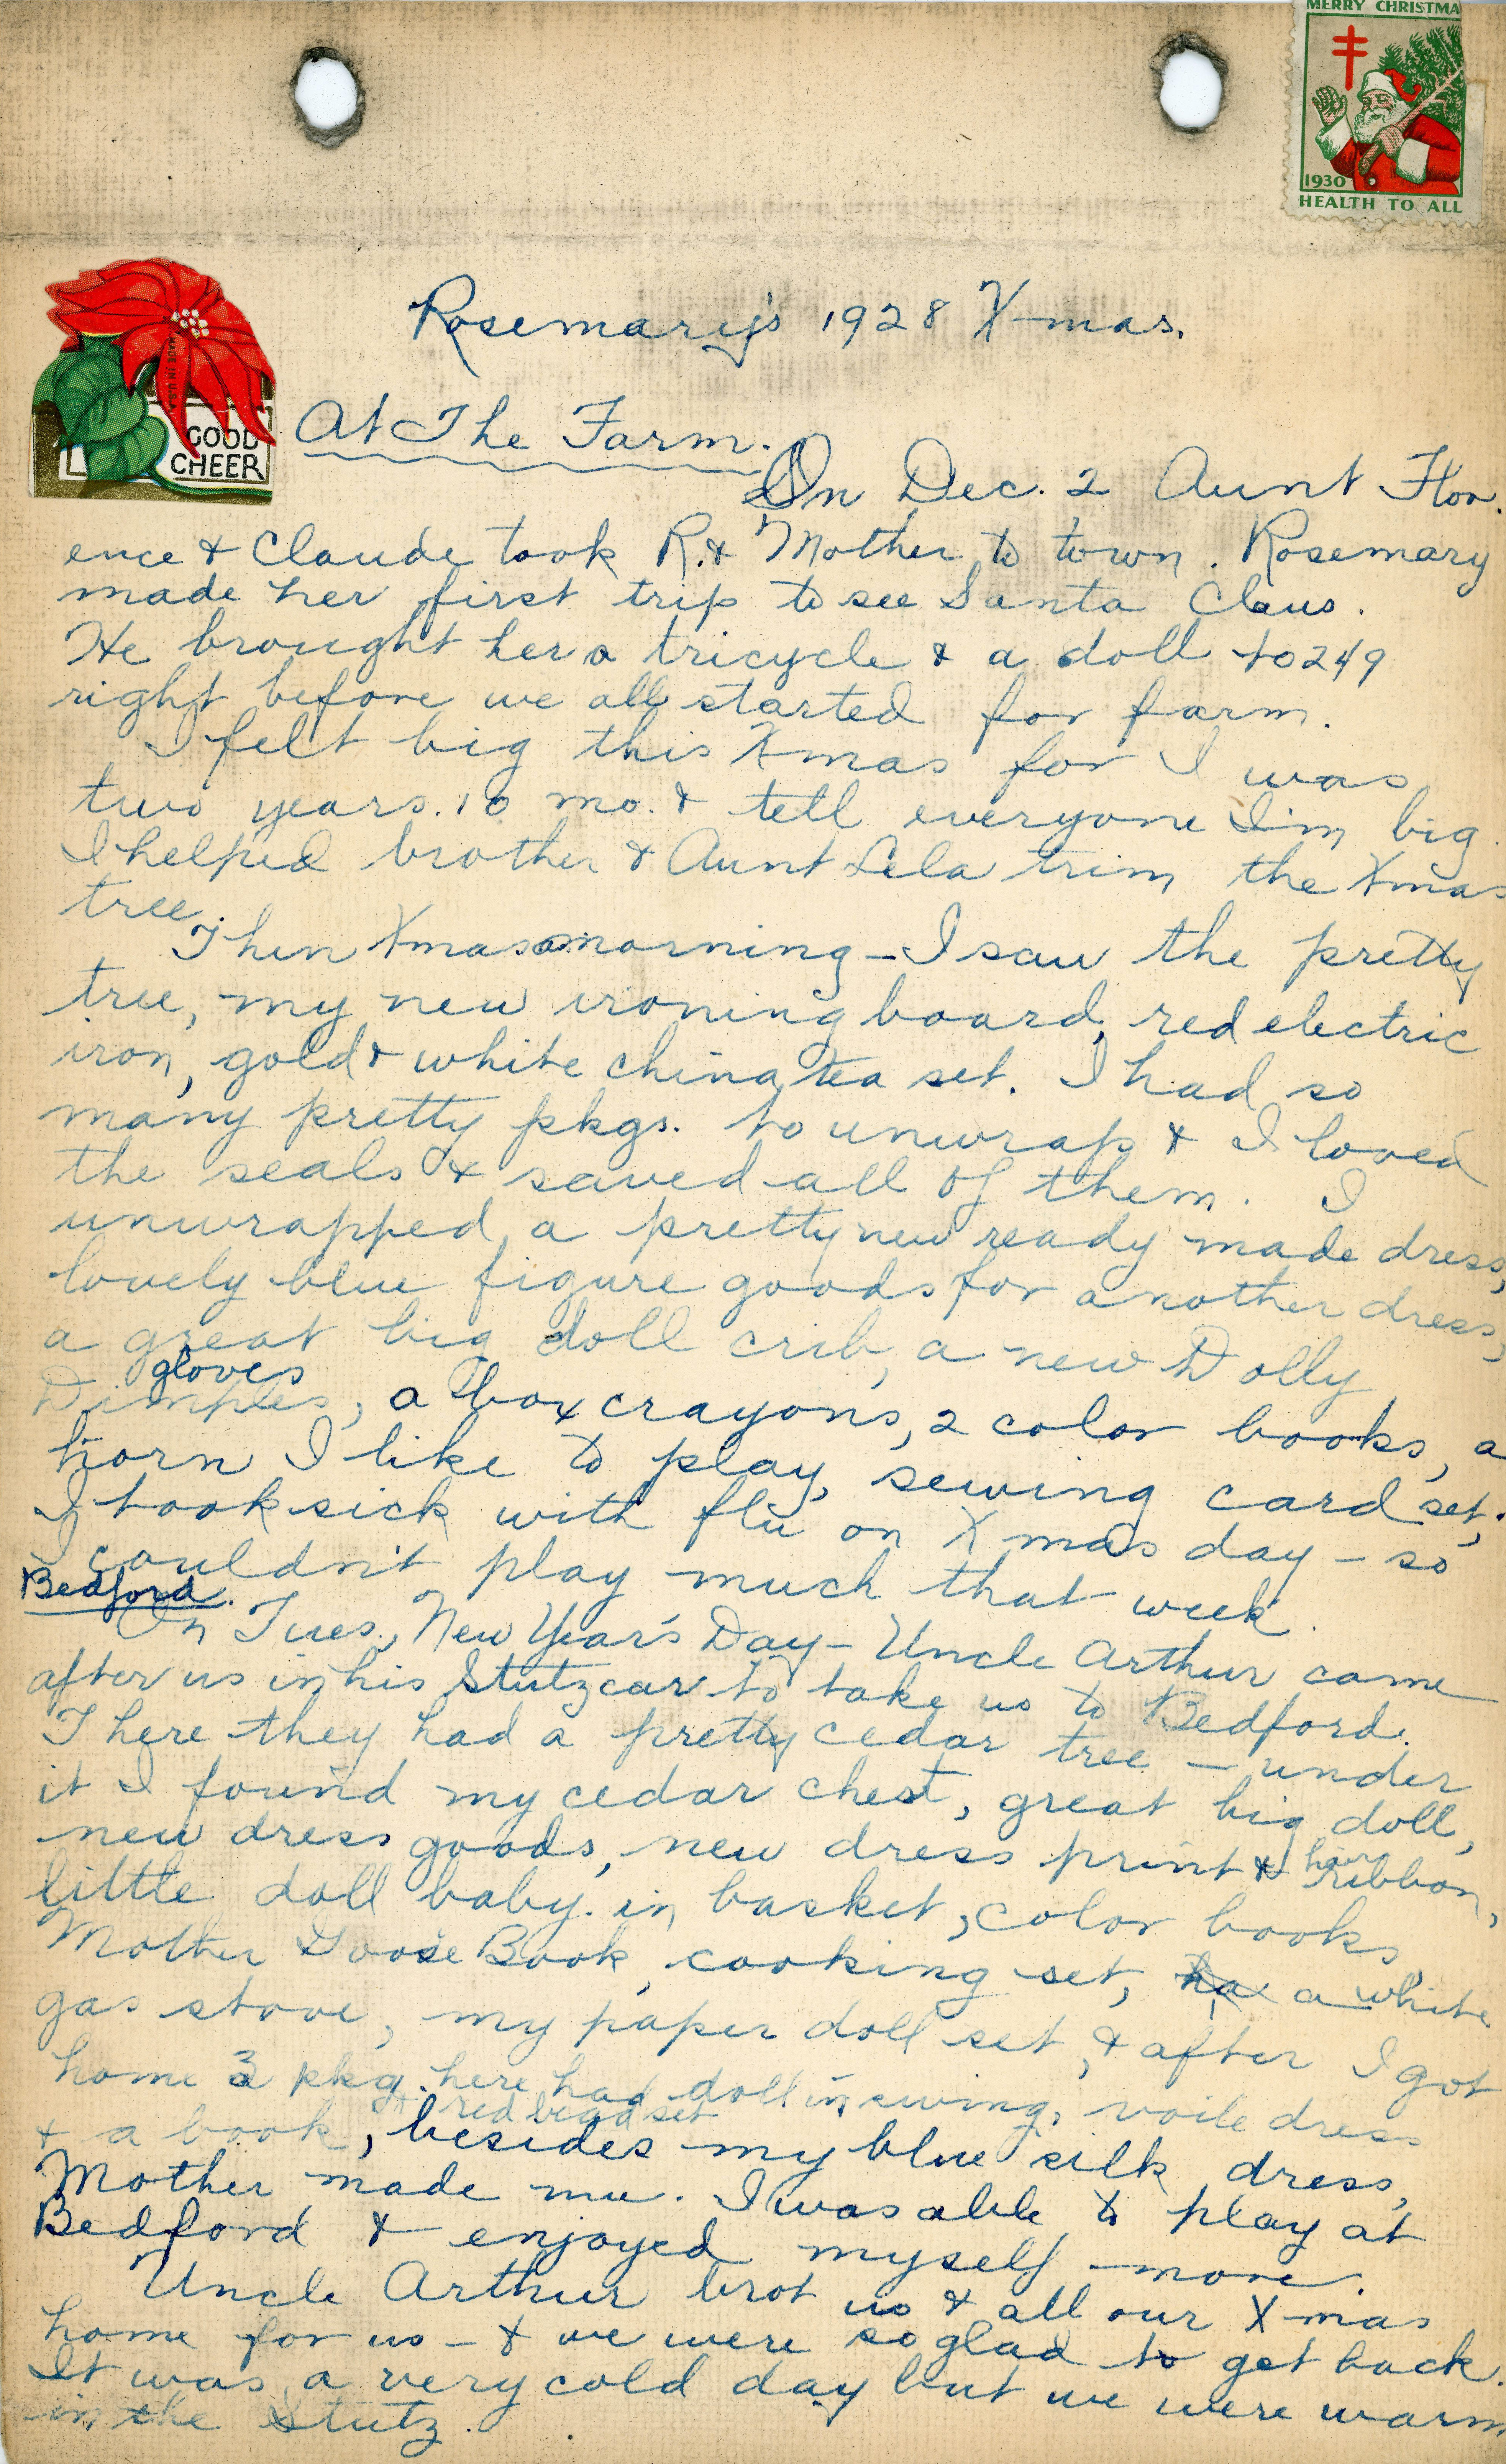 MERRY CHRISTMA
1930
HEALTH TO ALL
MADE IN U.S.A
GOOD
CHEER
Rosemary's 1928 X-mas.
At The Farm.
On Dec. 2 Aunt Flor.
ence & Claude took R. & Mother to town. Rosemary
made her first trip to see Santa Claus.
He brought her a tricycle & a doll to 249
right before we all started for farm.
I felt big this Xmas for I was
two years. 10 mo. & tell everyone I'm big.
I helped brother & Aunt Lela trim the Xmas
tree.
Then Xmas morning - I saw the pretty
tree, my new ironing board, red electric
iron, gold & white china tea set. I had so
many pretty pkgs. to unwrap & I loved
the seals & saved all of them. I
unwrapped a pretty new ready made dress,
lovely blue figure goods for another dress,
a great big doll crib, a new Dolly
gloves
Dimples, a box crayons, 2 color books, a
horn I like to play, sewing card set,
I took sick with flu on Xmas day - so
I couldn't play much that week.
Bedford.
On Tues., New Year's Day - Uncle Arthur came
after us in his Stutz car to take us to Bedford.
There they had a pretty cedar tree - under
it I found my cedar chest, great big doll,
new dress goods, new dress print & hair ribbon,
little doll baby in basket, color books
Mother Goose Book, cooking set, a white
gas stove, my paper doll set, & after I got
home 3 pkg. here had doll in swing, voile dress
red bead set
& a book, besides my blue silk dress,
Mother made me. I was able to play at
Bedford & enjoyed myself more.
Uncle Arthur brot us & all our X-mas
home for us - & we were so glad to get back.
It was a very cold day but we were warm
in the Stutz.